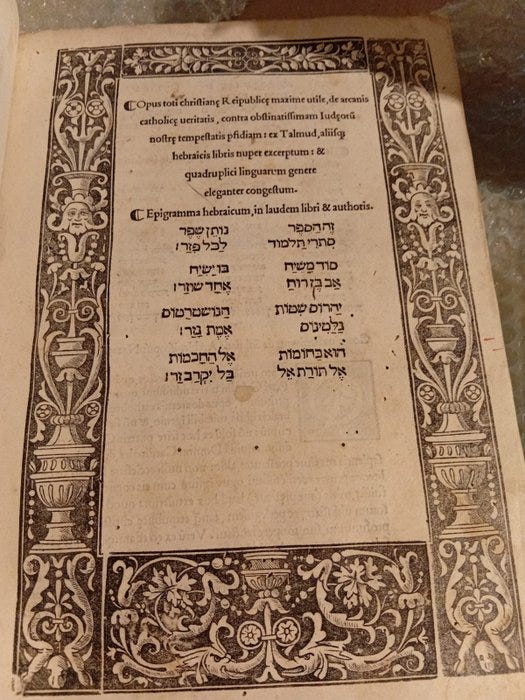 ¶ Opus toti christianę Reipublicę maxime utile, de arcanis
catholicę ueritatis, contra obstinatissimam Iudęorũ
nostrę tempestatis ꝑfidiam: ex Talmud, aliisqꝫ
hebraicis libris nuper excerptum: &
quadruplici linguarum genere
eleganter congestum.
¶ Epigramma hebraicum, in laudem libri & authoris.
זה הספר נותן שפר
סתרי תלמוד לכל פזר!
סוד משיח בו ישיח
אב בן רוח אחד שוזר!
יהרוס שטות הנושטרטוס
גלטינוס אמת גזר!
הוא כחומות אל החכמות
אל תורת אל בל יקרב זר!